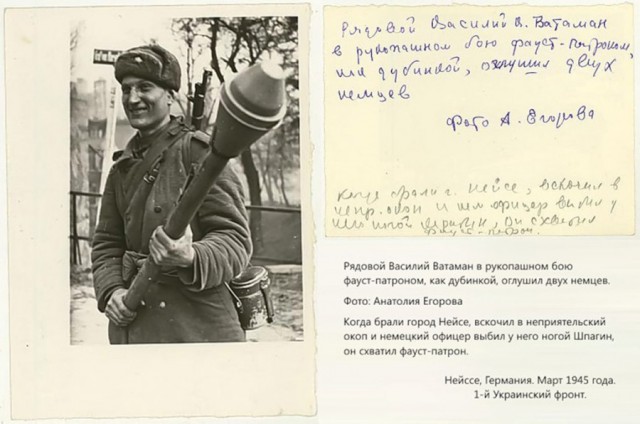 Рядовой Василий В. Ватаман
в рукопашном бою фауст-патроном,
как дубинкой, оглушил двух
немцев
Фото А. Егорова
когда брали г. Нейсе, вскочил в
непр. окоп и нем офицер выбил у
него ногой Шпагин, он схватил
фауст-патрон.
Рядовой Василий Ватаман в рукопашном бою
фауст-патроном, как дубинкой, оглушил двух немцев.
Фото: Анатолия Егорова
Когда брали город Нейсе, вскочил в неприятельский
окоп и немецкий офицер выбил у него ногой Шпагин,
он схватил фауст-патрон.
Нейссе, Германия. Март 1945 года.
1-й Украинский фронт.